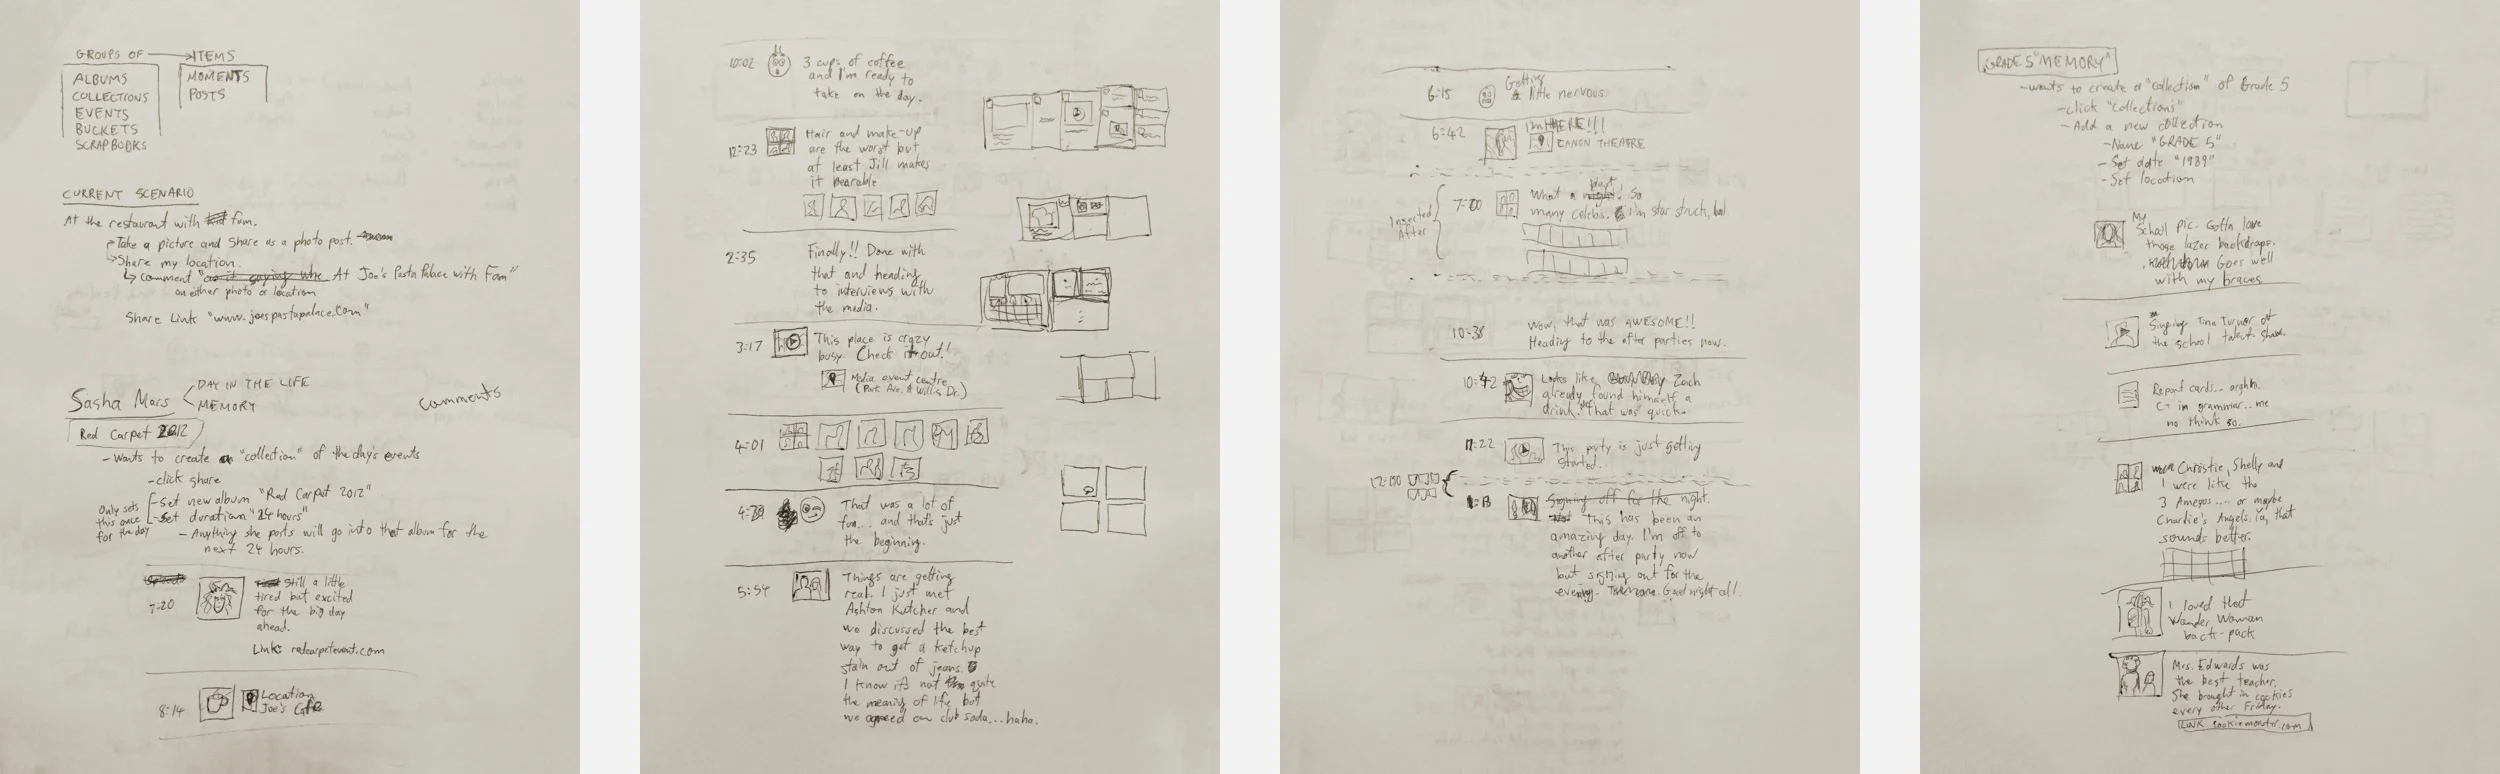 GROUPS OF → ITEMS
ALBUMS
COLLECTIONS
EVENTS
BUCKETS
SCRAPBOOKS
MOMENTS
POSTS
CURRENT SCENARIO
At the restaurant with fam.
Take a picture and share as a photo post.
Share my location.
Comment " At Joe's Pasta Palace with Fam"
on either photo or location
Share Link "www.joespastapalace.com"
Sasha Mars
DAY IN THE LIFE
MEMORY
comments
Red Carpet 2012
- Wants to create a "collection" of the day's events
- click share
Only sets
this once
for the day
- Set new album "Red Carpet 2012"
- Set duration "24 hours"
- Anything she posts will go into that album for the
next 24 hours.
7:20
Still a little
tired but excited
for the big day
ahead.
Link: redcarpetevent.com
8:14
Location
Joe's Cafe
10:02
3 cups of coffee
and I'm ready to
take on the day.
12:23
Hair and make-up
are the worst but
at least Jill makes
it bearable
2:35
Finally!! Done with
that and heading
to interviews with
the media.
3:17
This place is crazy
busy. Check it out!
Media event centre
(Park Ave. & Willis Dr.)
4:01
4:20
That was a lot of
fun... and that's just
the beginning.
5:54
Things are getting
real. I just met
Ashton Kutcher and
we discussed the best
way to get a ketchup
stain out of jeans.
I know it's not quite
the meaning of life but
we agreed on club soda...haha.
6:15
Getting
a little nervous.
6:42
I'm HERE!!!
CANON THEATRE
Inserted
After
7:00
What a night! So
many celebs. I'm star struck, lol
10:38
Wow, that was AWESOME!!
Heading to the after parties now.
10:42
Looks like Zach
already found himself a
drink. That was quick.
11:22
This party is just getting
started.
12:00
1:13
Signing off for the night.
This has been an
amazing day. I'm off to
another after party now
but signing out for the
evening. Good night all!
GRADE 5 "MEMORY"
- wants to create a "collection" of Grade 5
- click "collections"
- Add a new collection
- Name "GRADE 5"
- Set date "1989"
- Set location
My
School pic. Gotta love
those lazer backdrops.
Goes well
with my braces
Singing Tina Turner at
the school talent show.
Report cards.. arghh.
C- in grammar.. me
no think so.
Christie, Shelly and
I were like the
3 Amegos.... or maybe
Charlie's Angels. ya, that
sounds better.
I loved that
Wonder Woman
back-pack
Mrs. Edwards was
the best teacher.
She brought in cookies
every other Friday.
LINK cookiemonster.com